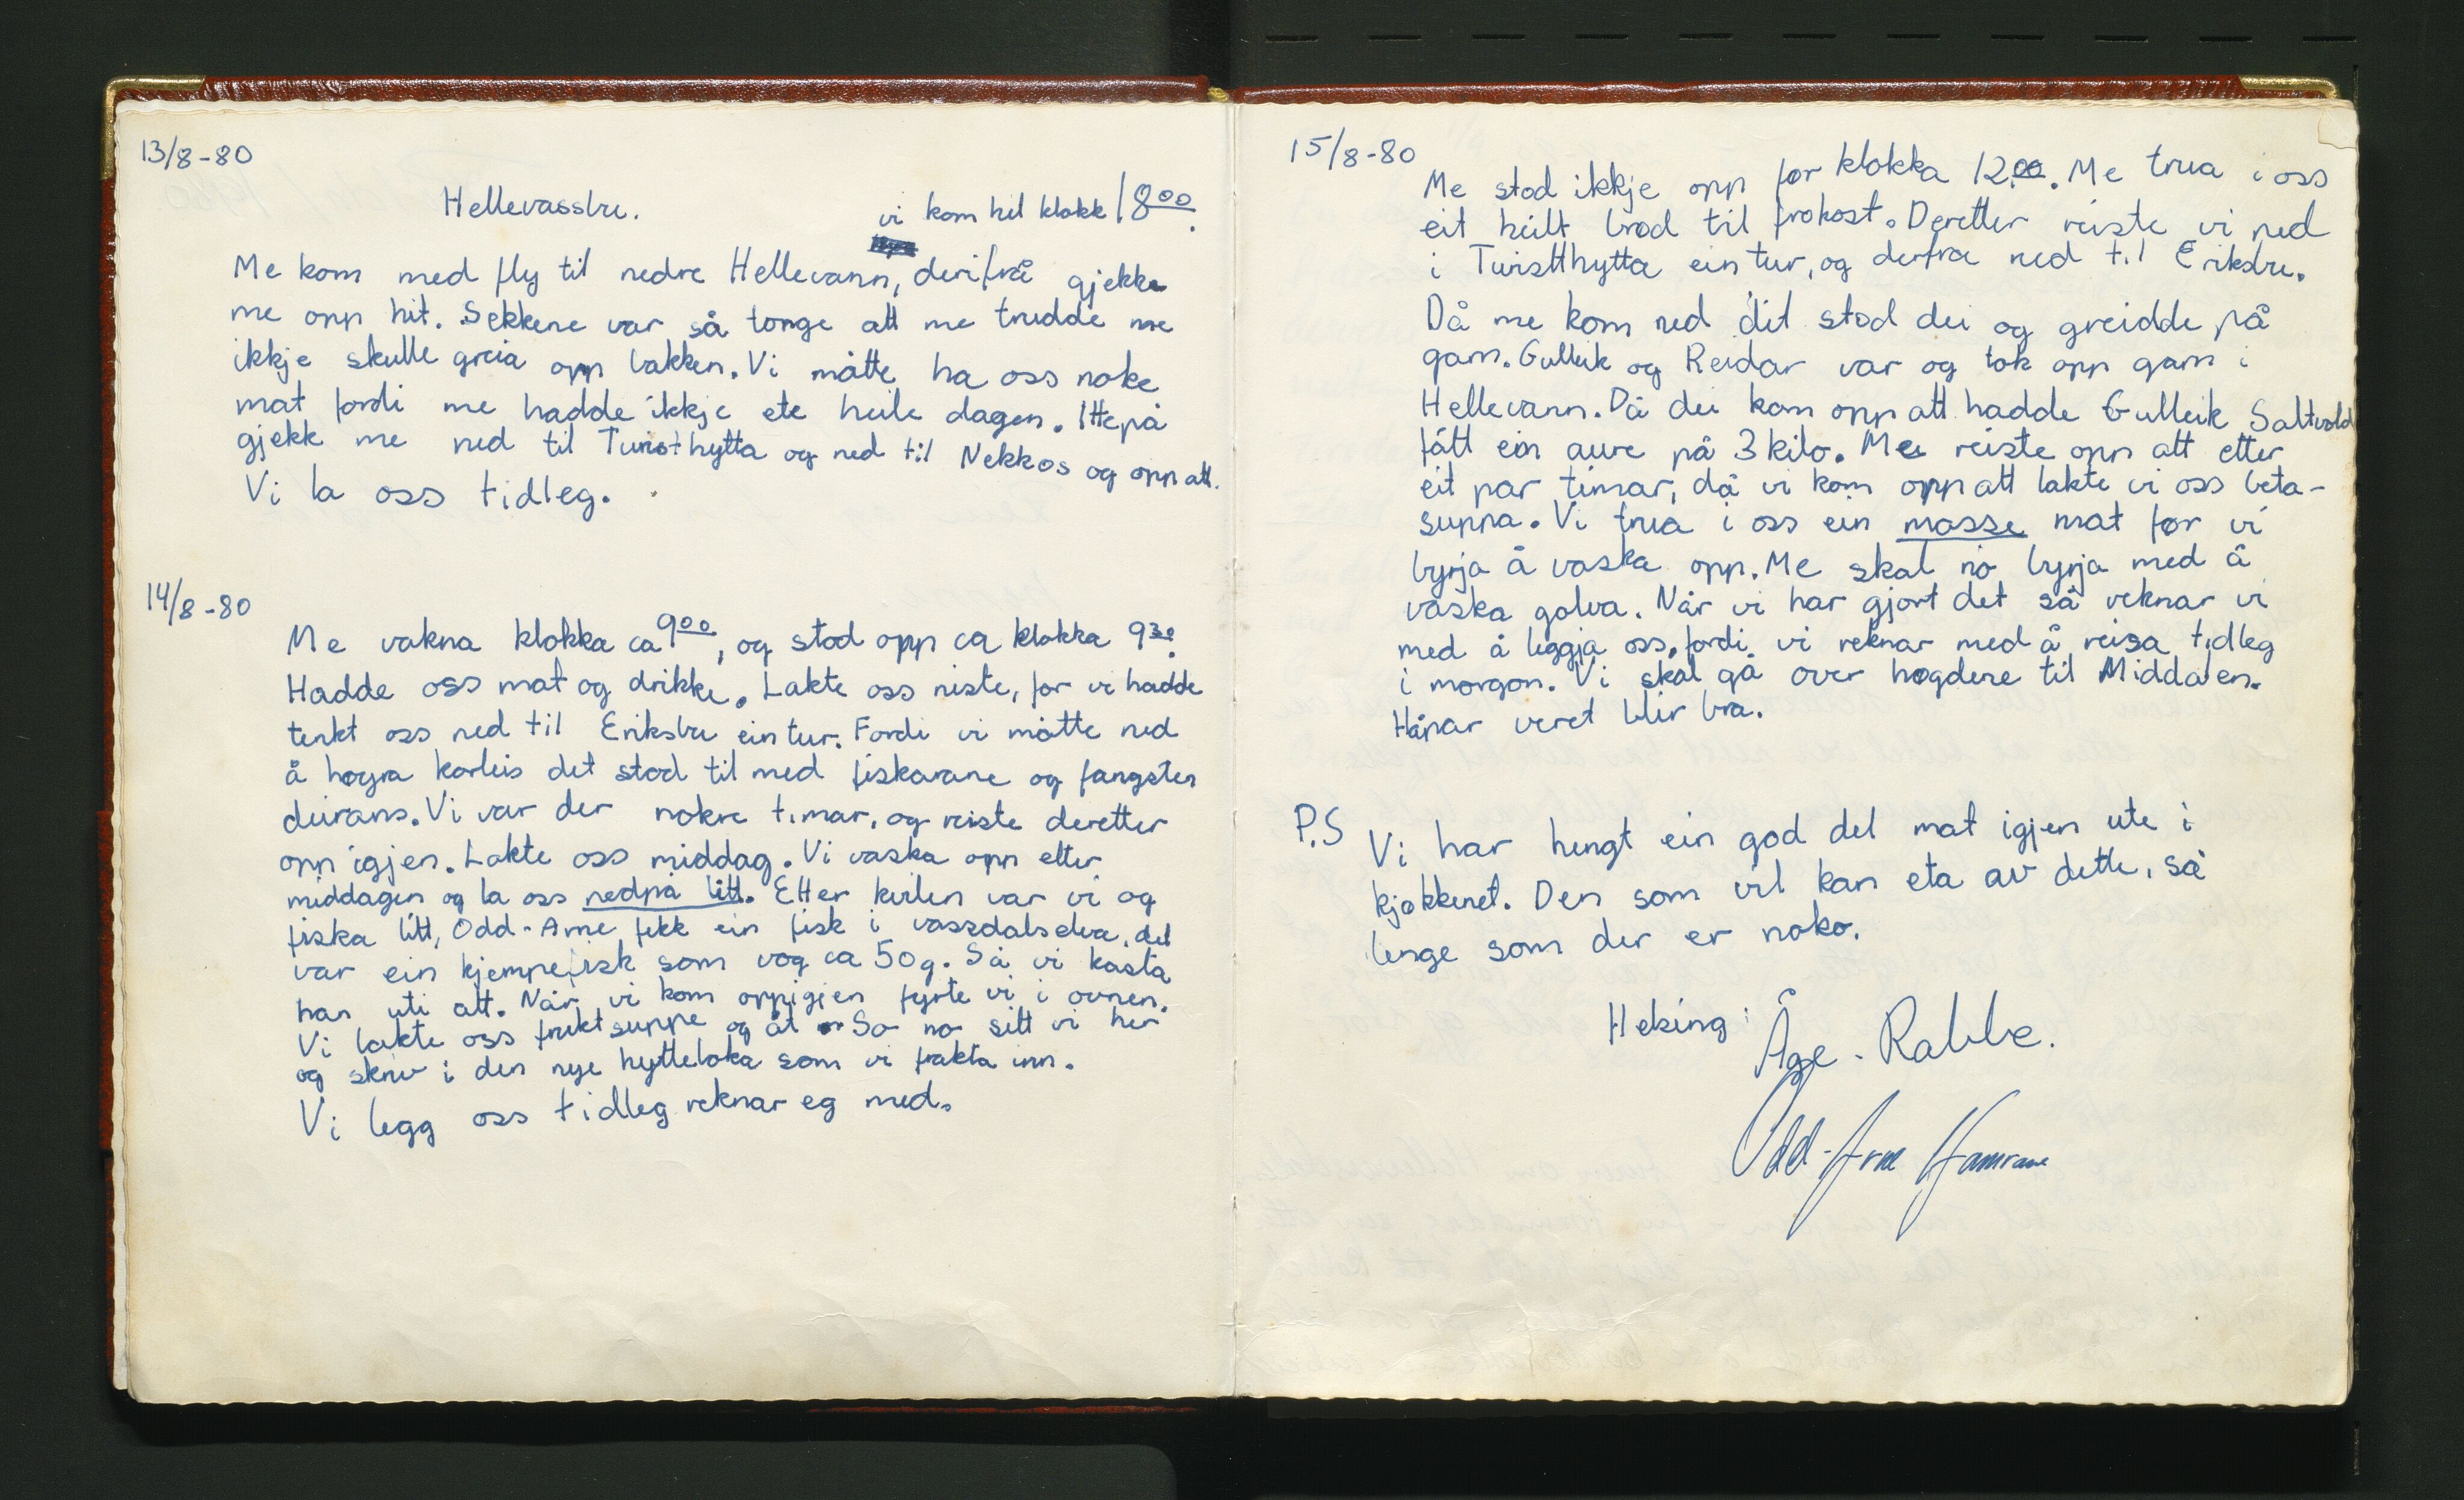 13/8-80
Hellevassbu. vi kom hit klokk 18⁰⁰.
Me kom med fly til nedre Hellevann, derifrå gjekk
me opp hit. Sekkene var så tonge att me trudde me
ikkje skulle greia opp bakken. Vi måtte ha oss noke
mat fordi me hadde ikkje ete heile dagen. Ittepå
gjekk me ned til Turisthytta og ned til Nekkos og opp att.
Vi la oss tidleg.
14/8-80
Me vakna klokka ca 9⁰⁰, og stod opp ca klokka 9³⁰.
Hadde oss mat og drikke. Lakte oss niste, for vi hadde
tenkt oss ned til Eriksbu ein tur. Fordi vi måtte ned
å høyra korleis det stod til med fiskarane og fangsten
deirans. Vi var der nokre timar, og reiste deretter
opp igjen. Lakte oss middag. Vi vaska opp etter
middagen og la oss nedpå litt. Etter kvilen var vi og
fiska litt, Odd-Arne fekk ein fisk i vassdalselva, det
var ein kjempefisk som vog ca 50g. Så vi kasta
han uti att. Når vi kom oppigjen fyrte vi i ovnen.
Vi lakte oss fruktsuppe og åt. So no sitt vi her
og skriv i den nye hytteboka som vi frakta inn.
Vi legg oss tidleg reknar eg med.
15/8-80
Me stod ikkje opp før klokka 12⁰⁰. Me trua i oss
eit heilt brød til frokost. Deretter reiste vi ned
i Turistthytta ein tur, og derfra ned til Eriksbu.
Då me kom ned dit stod dei og greidde på
garn. Gulleik og Reidar var og tok opp garn i
Hellevann. Då dei kom opp att hadde Gulleik Saltvold
fått ein aure på 3 kilo. Me reiste opp att etter
eit par timar, då vi kom opp att lakte vi oss beta-
suppa. Vi trua i oss ein masse mat før vi
byrja å vaska opp. Me skal no byrja med å
vaska golva. Når vi har gjort det så reknar vi
med å leggja oss, fordi vi reknar med å reisa tidleg
i morgon. Vi skal gå over høgdene til Middalen.
Håpar veret blir bra.
P.S Vi har hengt ein god del mat igjen ute i
kjøkkenet. Den som vil kan eta av dette, så
lenge som der er noko.
Helsing: Åge - Rabbe.
Odd-Arne Hamrane